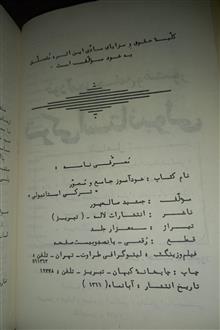 کلیهٔ حقوق و مزایای مادی این اثر متعلق
به خود مولف است.
معرفی نامه:
نام کتاب: خودآموز جامع و مصور
ترکی استانبولی
مولف: جمشید صالحپور
ناشر: انتشارات لاله - (تبریز)
تیراژ: سه هزار جلد
قطع: رقعی - با دویست صفحه
فیلم وزینگ: لیتوگرافی طراوت - تهران - تلفن
چاپ: چاپخانهٔ کیهان - تبریز - تلفن
تاریخ انتشار: آبانماه